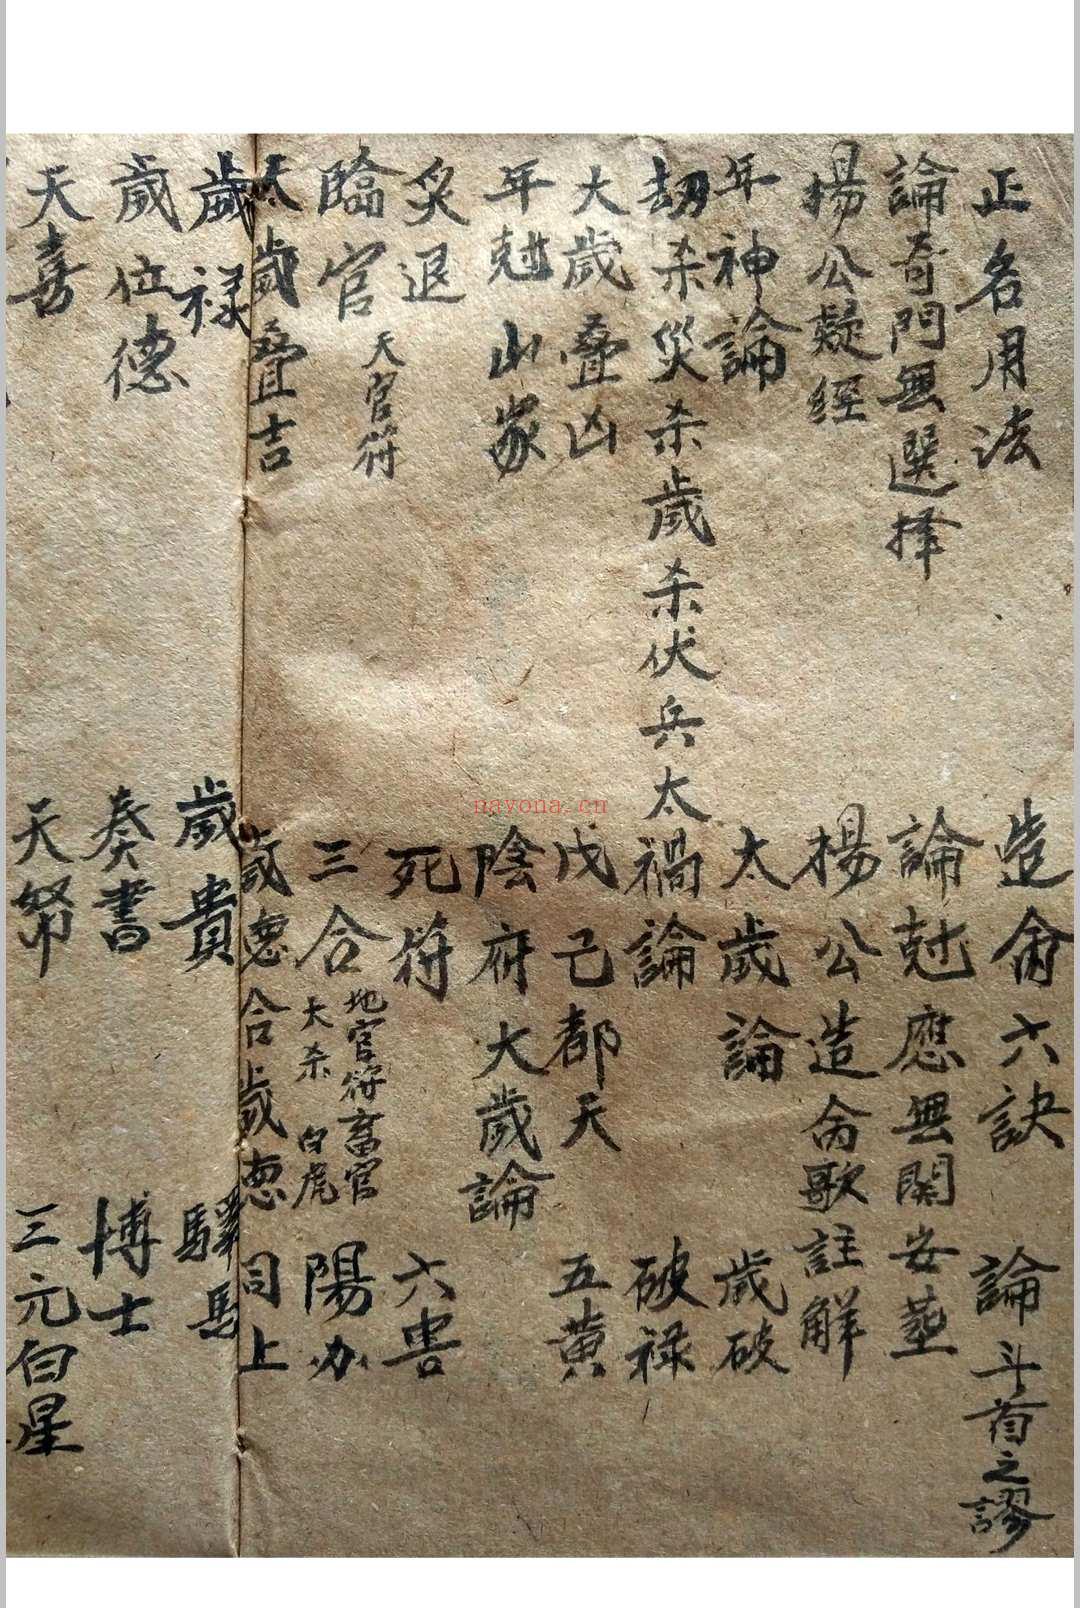 正名用法 造命六訣 論斗首之謬
論奇門無選择 論尅應無関安塟
楊公疑经 楊公造命歌註解
年神論 太歲論 歲破
劫杀災杀歲杀伏兵太禍論 破禄
大歲叠凶 戊己都天 五黄
年尅山家 陰府大歲論
炙退 死符 六害
臨官 天官符 三合 地官符畜官 大杀 白虎 陽办
太歲叠吉 歲恴合歲恴 同上
歲禄 歲貴 驛馬
歲位德 奏書 博士
天喜 天帑 三元白星
nayona.cn